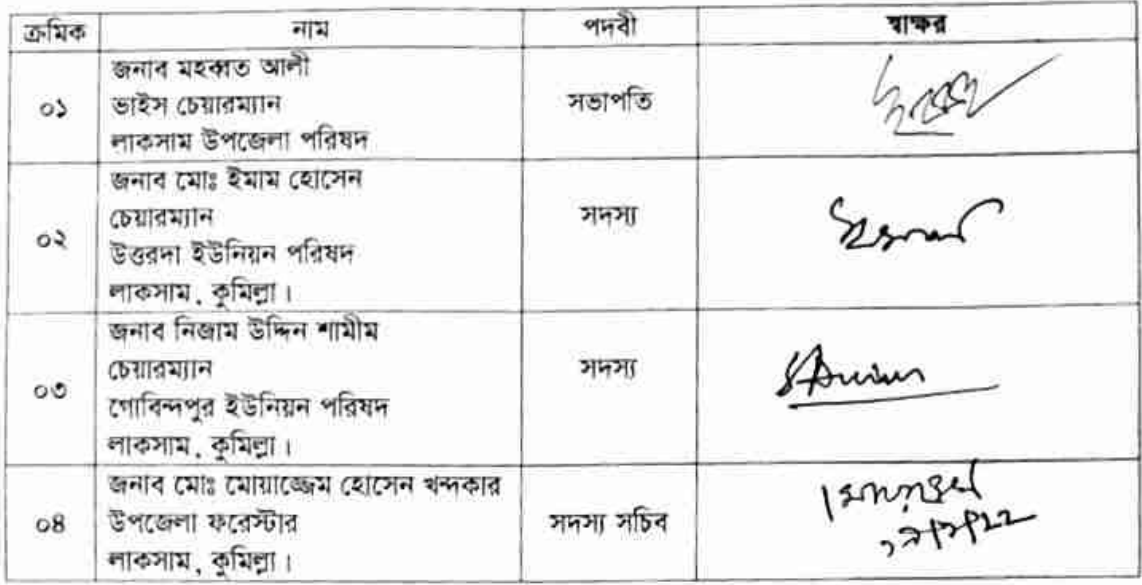 ক্রমিক নাম পদবী স্বাক্ষর
০১ জনাব মহব্বত আলী
ভাইস চেয়ারম্যান
লাকসাম উপজেলা পরিষদ
সভাপতি
০২ জনাব মোঃ ইমাম হোসেন
চেয়ারম্যান
উত্তরদা ইউনিয়ন পরিষদ
লাকসাম, কুমিল্লা।
সদস্য
০৩ জনাব নিজাম উদ্দিন শামীম
চেয়ারম্যান
গোবিন্দপুর ইউনিয়ন পরিষদ
লাকসাম, কুমিল্লা।
সদস্য
০৪ জনাব মোঃ মোয়াজ্জেম হোসেন খন্দকার
উপজেলা ফরেস্টার
লাকসাম, কুমিল্লা।
সদস্য সচিব